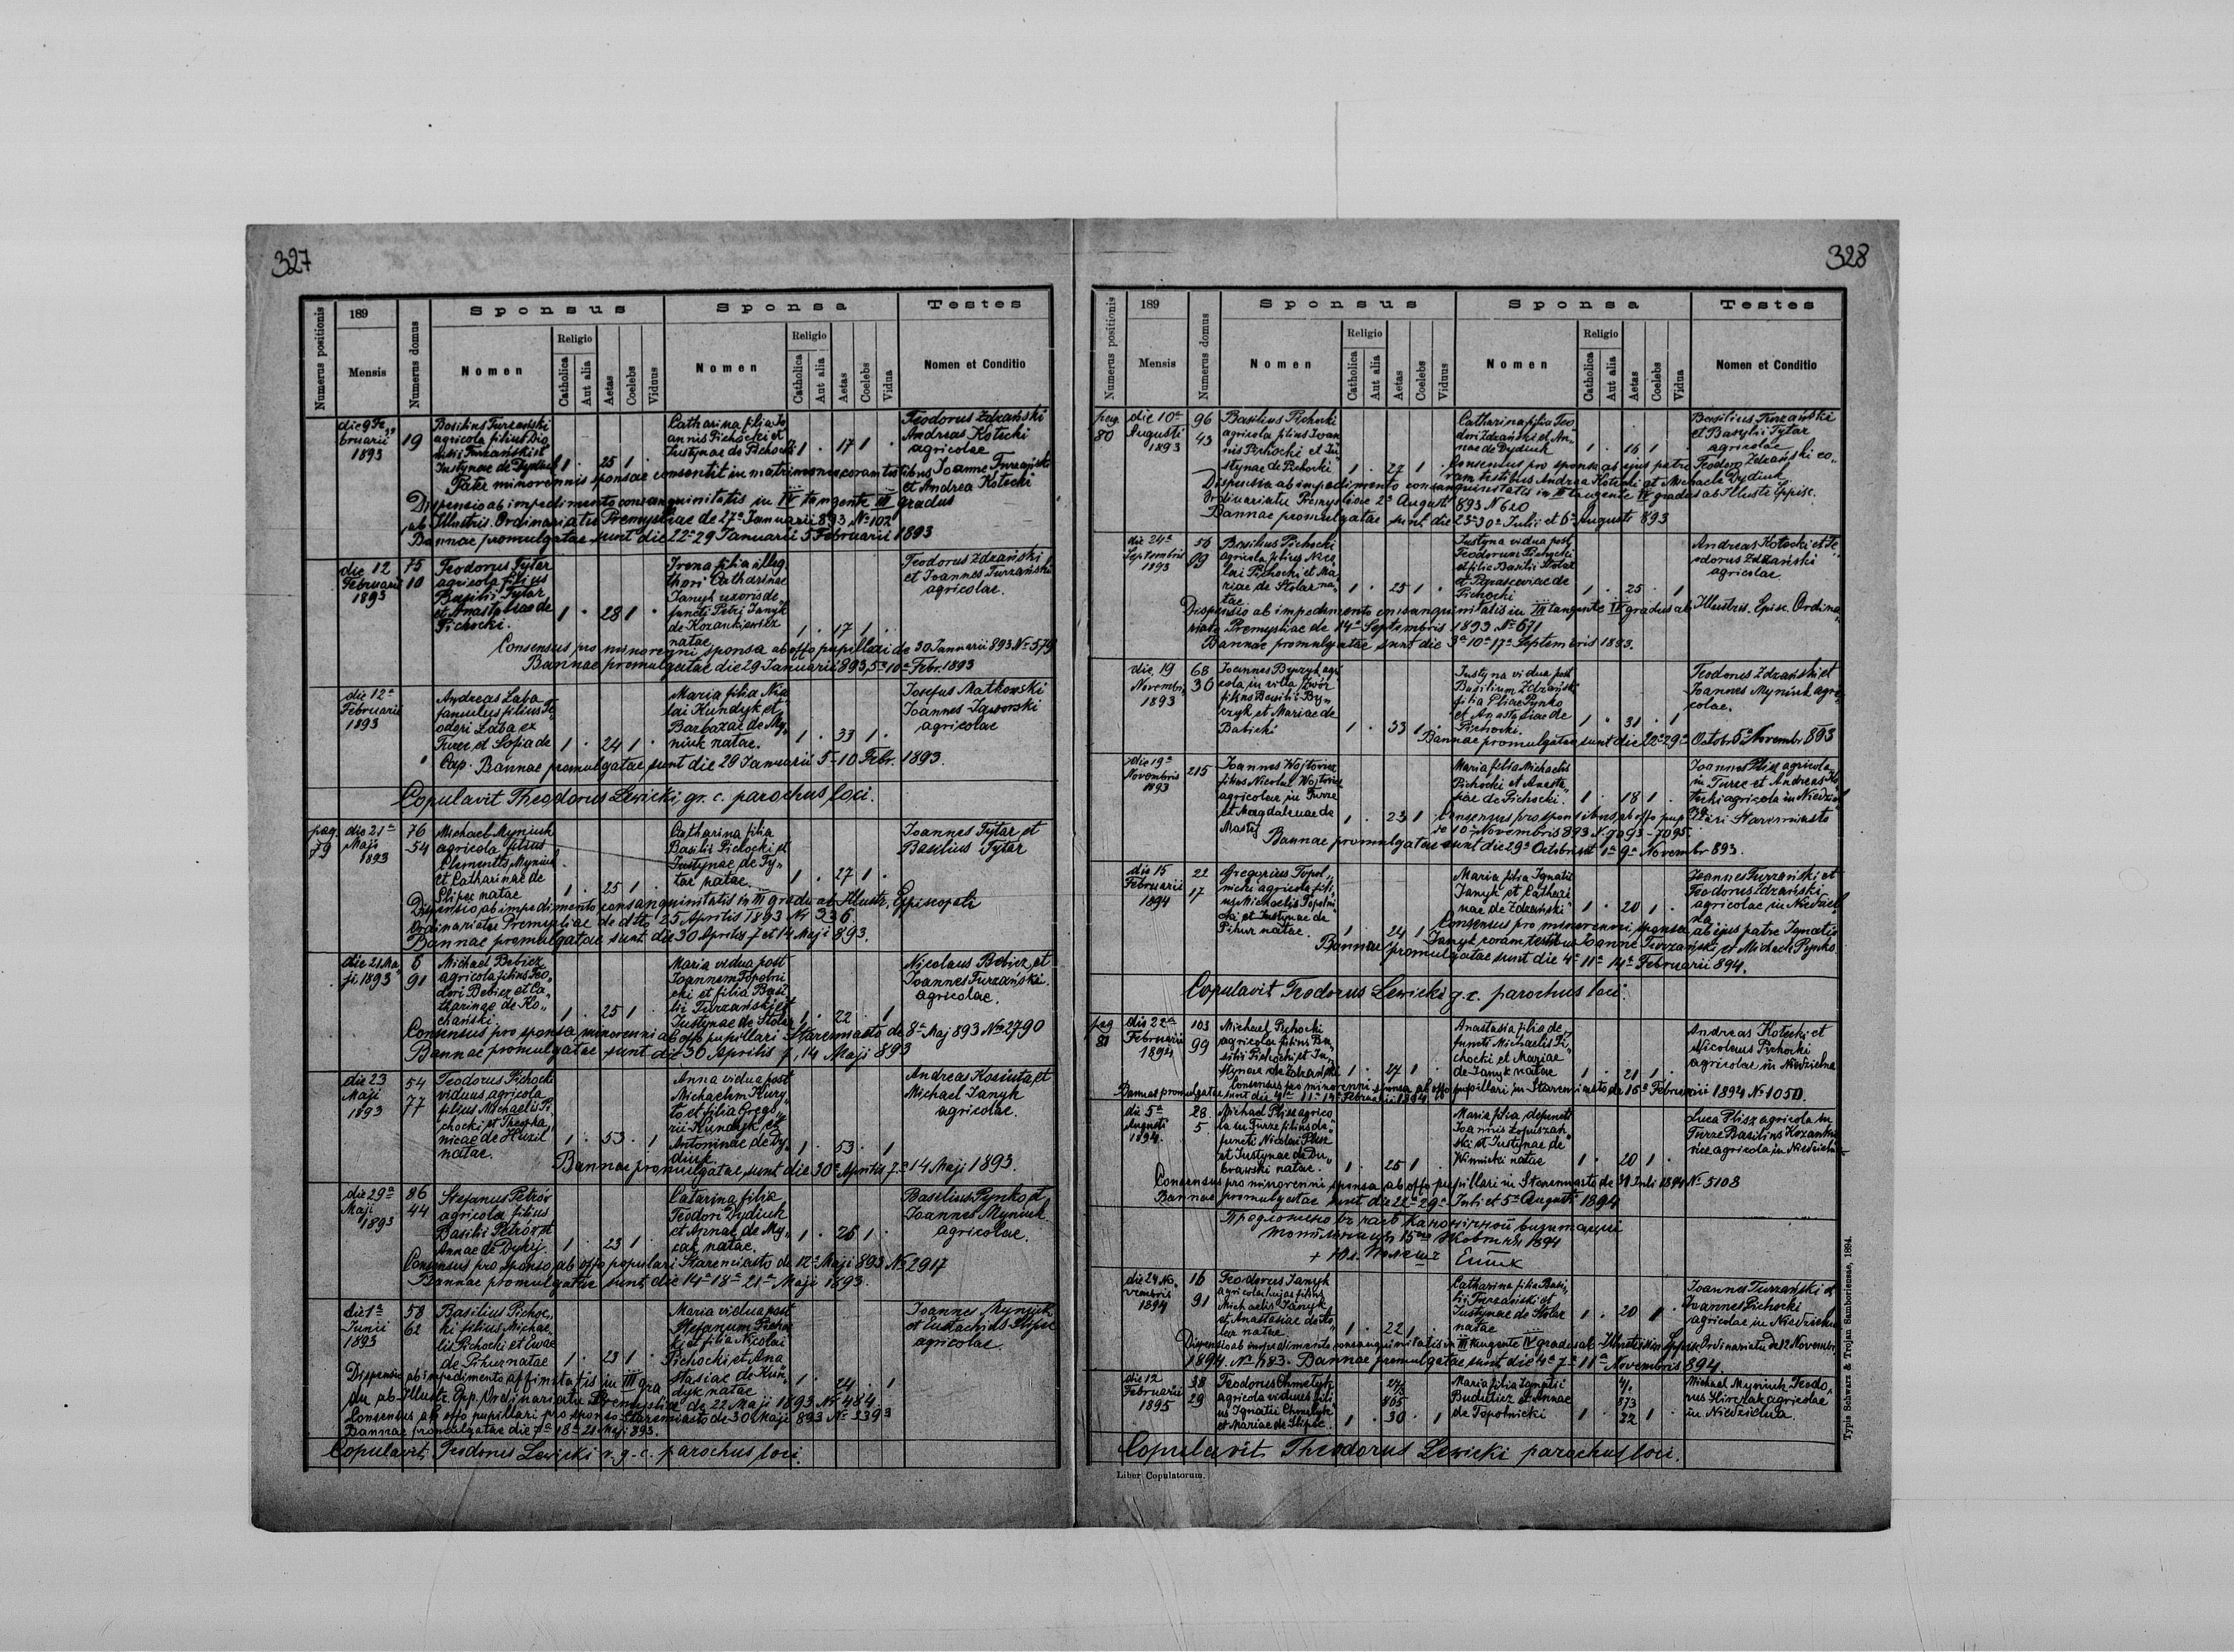 327
Numerus positionis
189
Mensis
Numerus domus
Sponsus
Nomen
Religio
Catholica
Aut alia
Aetas
Coelebs
Viduus
Sponsa
Nomen
Religio
Catholica
Aut alia
Aetas
Coelebs
Vidua
Testes
Nomen et Conditio
die 9 Fe„
bruarii
1893
19
Basilius Turzański
agricola filius Dio
nisii Turzański et
Justynae de Dydiuk 1 · 25 1 ·
Catharina filia Jo
annis Pichocki et
Justynae de Pichocki 1 · 17 1 ·
Teodorus Zdzański
Andreas Kotecki
agricolae
Pater minorennis sponsae consentit in matrimonio coram testibus Joanne Turzański
et Andrea Kotecki
Dispensio ab impedimento consanguinitatis in IV tangente III gradus
ab Illustris. Ordinariatu Premysliae de 27a Januarii 893 No 102
Bannae promulgatae sunt die 22a 29 Januarii 5 Februarii 1893
die 12
Februarii
1893
75
10
Teodorus Tytar
agricola filius
Basilii Tytar
et Anastasiae de
Pichocki. 1 · 28 1 ·
Irena filia illeg
thori Catharinae
Janyk uxoris de„
functi Petri Janyk
de Kozankiewicz
natae 1 · 17 1 ·
Teodorus Zdzański
et Joannes Turzański
agricolae.
Consensus pro minorenni sponsa ab offo pupillari de 30 Januarii 893 No 579
Bannae promulgatae die 29 Januarii 893, 5a 10a Febr. 1893
die 12a
Februarii
1893
Andreas Laba
famulus filius Te
odori Laba ex
Turze et Sofia de
Cap. 1 · 24 1 ·
Maria filia Nico
lai Kundyk et
Barbarae de My„
niuk natae. 1 · 33 1 ·
Josefus Matkowski
Joannes Jaworski
agricolae
Bannae promulgatae sunt die 29 Januarii 5-10 Febr. 1893.
Copulavit Theodorus Lewicki gr. c. parochus loci.
pag.
79
die 21a
Maji
1893
76
54
Michael Myniuk
agricola filius
Clementis Myniuk
et Catharinae de
Slipec natae 1 · 25 1 ·
Catharina filia
Basilii Pichocki et
Justynae de Ty„
tar natae. 1 · 27 1 ·
Joannes Tytar et
Basilius Tytar
Dispensio ab impedimento consanguinitatis in III gradu ab Illustr. Episcopali
Ordinariatu Premysliae de dtto 25 Aprilis 1893 Nr 336.
Bannae promulgatae sunt die 30 Aprilis 7 et 14 Maji 893.
die 21 Ma„
ji 1893
6
91
Michael Bebicz
agricola filius Teo„
dori Bebicz et Ca„
tharinae de Ko„
chański 1 · 25 1 ·
Maria vidua post
Joannem Topolni
cki et filia Basi
lii Turzański et
Justynae de Stolar 1 · 22 · 1
Nicolaus Bebicz et
Joannes Turzański
agricolae.
Consensus pro sponsa minorenni ab offo pupillari Staremiasto de 8a Maj 893 No 2790
Bannae promulgatae sunt die 30 Aprilis 7, 14 Maji 893
die 23
Maji
1893
54
77
Teodorus Pichocki
viduus agricola
filius Michaelis Pi„
chocki et Theopha
nicae de Huzil
natae. 1 · 53 · 1
Anna vidua post
Michaelem Kury„
to et filia Grego„
rii Kundyk et
Antoninae de Dy„
diuk 1 · 53 · 1
Andreas Kosiuta et
Michael Janyk
agricolae.
Bannae promulgatae sunt die 30a Aprilis 7a 14 Maji 1893.
die 29a
Maji
1893
86
44
Stefanus Petrów
agricola filius
Basilii Petrów et
Annae de Dykij. 1 · 23 1 ·
Catarina filia
Teodori Dydiuk
et Annae de My„
cak natae. 1 · 26 1 ·
Basilius Pynko et
Joannes Myniuk
agricolae.
Consensus pro sponso ab offo pupillari Staremiasto de 12a Maji 893 No 2917
Bannae promulgatae sunt die 14a 18a 21a Maji 1893.
die 1a
Junii
1893
58
62
Basilius Pichoc„
ki filius Michae„
lis Pichocki et Evae
de Pihur natae 1 · 23 1 ·
Maria vidua post
Stefanum Pichoc
ki et filia Nicolai
Pichocki et Ana
stasiae de Kun„
dyk natae 1 · 24 · 1
Joannes Myniuk
et Eustachius Slipec
agricolae.
Dispensio ab impedimento affinitatis in III gra
du ab Illustr. Epp. Ordinariatu Premysliae de 22 Maji 1893 Nr 484.
Consensus ab offo pupillari pro sponso Staremiasto de 30 Maji 893 No 3393
Bannae promulgatae die 7a 18a 21 Maji 893.
Copulavit Teodorus Lewicki r. g. c. parochus loci.
328
Numerus positionis
189
Mensis
Numerus domus
Sponsus
Nomen
Religio
Catholica
Aut alia
Aetas
Coelebs
Viduus
Sponsa
Nomen
Religio
Catholica
Aut alia
Aetas
Coelebs
Vidua
Testes
Nomen et Conditio
pag.
80
die 10a
Augusti
1893
96
43
Basilius Pichocki
agricola filius Joan
nis Pichocki et Ju
stynae de Pichocki. 1 · 27 1 ·
Catharina filia Teo
dori Zdzański et An„
nae de Dydiuk 1 · 16 1 ·
Basilius Turzański
et Basylii Tytar
agricolae
Consensus pro sponsa ab ejus patre Teodoro Zdzański co„
ram testibus Andrea Kotecki et Michaele Dydiuk
Dispensio ab impedimento consanguinitatis in III tangente IV gradus ab Illustr. Episc.
Ordinariatu Premysliae 2a Augusti 893 N 620
Bannae promulgatae sunt die 23a 30a Julii et 6a Augusti 893
die 24a
Septembris
1893
56
99
Basilius Pichocki
agricola filius Nico
lai Pichocki et Ma„
riae de Stolar na„
tae 1 · 25 1 ·
Justyna vidua post
Teodorum Pichocki
et filia Basilii Stolar
et Parasceviae de
Pichocki 1 · 25 · 1
Andreas Kotecki et Te„
odorus Zdzański
agricolae.
Dispensio ab impedimento consanguinitatis in III tangente IV gradus ab Illustris. Episc. Ordina„
riatu Premysliae de 14a Septembris 1893 No 671
Bannae promulgatae sunt die 3a 10a 17a Septembris 1893.
die 19
Novembr.
1893
68
36
Joannes Byczyk agri
cola in villa Zwór
filius Basilii By„
czyk et Mariae de
Babicki 1 · 33 1 ·
Justyna vidua post
Basilium Zdzański
filia Eliae Pynko
et Anastasiae de
Pichocki. 1 · 31 · 1
Teodorus Zdzański et
Joannes Myniuk agri„
colae.
Bannae promulgatae sunt die 22a 29a Octobr. 5a Novembr 893
die 19a
Novembris
1893
215
Joannes Wojtowicz
filius Nicolai Wojtowicz
agricolae in Turze
et Magdalenae de
Mastej 1 · 23 1 ·
Maria filia Michaelis
Pichocki et Anasta„
siae de Pichocki. 1 · 18 1 ·
Joannes Plisz agricola
in Turze et Andreas Ko
tecki agricola in Niedziel
na
Consensus pro sponsibus ab offo pupillari Staremiasto
de 10a Novembris 893 N 7093-7095.
Bannae promulgatae sunt die 29a Octobris et 1a 9a Novembr 893.
die 15
Februarii
1894
22
17
Gregorius Topol„
nicki agricola fili„
us Michaelis Topolni
cki et Justynae de
Pihur natae. 1 · 24 1 ·
Maria filia Ignatii
Janyk et Cathari
nae de Zdzański 1 · 20 1 ·
Joannes Turzański et
Teodorus Zdzański
agricolae in Niedziel
na
Consensus pro minorenni sponsa ab ejus patre Ignatio
Janyk coram testibus Joanne Turzański et Michaele Pynko.
Bannae promulgatae sunt die 4a 11a 14a Februarii 894.
Copulavit Teodorus Lewicki g. c. parochus loci.
pag
81
die 22a
Februarii
1894
103
99
Michael Pichocki
agricola filius Ba„
silii Pichocki et Ju„
stynae de Zdzański 1 · 27 1 ·
Anastasia filia de„
functi Michaelis Pi„
chocki et Mariae
de Janyk natae 1 · 21 1 ·
Andreas Kotecki et
Nicolaus Pichocki
agricolae in Niedzielna
Consensus pro minorenni sponsa ab offo pupillari in Staremiasto de 16a Februarii 1894 No 1050.
Bannae promulgatae sunt die 4a 11a 14a Februarii 1894
die 5a
Augusti
1894.
28
5
Michael Plisz agrico
la in Turze filius de„
functi Nicolai Plisz
et Justynae de Du„
brawski natae. 1 · 25 1 ·
Maria filia defuncti
Joannis Łopuszań
ski et Justynae de
Winnicki natae 1 · 20 1 ·
Luca Plisz agricola in
Turze Basilius Kozankie
wicz agricola in Niedzielna
Consensus pro minorenni sponsa ab offo pupillari in Staremiasto de 31 Juli 1894 No 5108
Bannae promulgatae sunt die 22a 29a Juli et 5a Augusti 1894
15 1894
die 24 No„
vembris
1894
16
91
Teodorus Janyk
agricola hujas filius
Michaelis Janyk
et Anastasiae de Sto„
lar natae. 1 · 22 1 ·
Catharina filia Basi„
lii Turzański et
Justynae de Stolar
natae 1 · 20 1 ·
Joannes Turzański et
Joannes Pichocki
agricolae in Niedzielna
Dispensio ab impedimento consanguinitatis in III tangente IV gradus ab Illustrissimo Episc. Ordinariatu de 12 Novembr.
1894. No 783. Bannae promulgatae sunt die 4a 7a 11a Novembris 894.
die 12
Februarii
1895
38
29
Teodorus Chmelyk
agricola viduus fili„
us Ignatii Chmelyk
et Mariae de Slipec. 1 · 30 · 1
Maria filia Ignatii
Budulicz et Annae
de Topolnicki 1 · 22 1 ·
Michael Myniuk Teodo„
rus Hirczak agricolae
in Niedzielna.
Copulavit Theodorus Lewicki parochus loci.
Liber Copulatorum.
Typis Schwarz & Trojan Samboriensae, 1894.